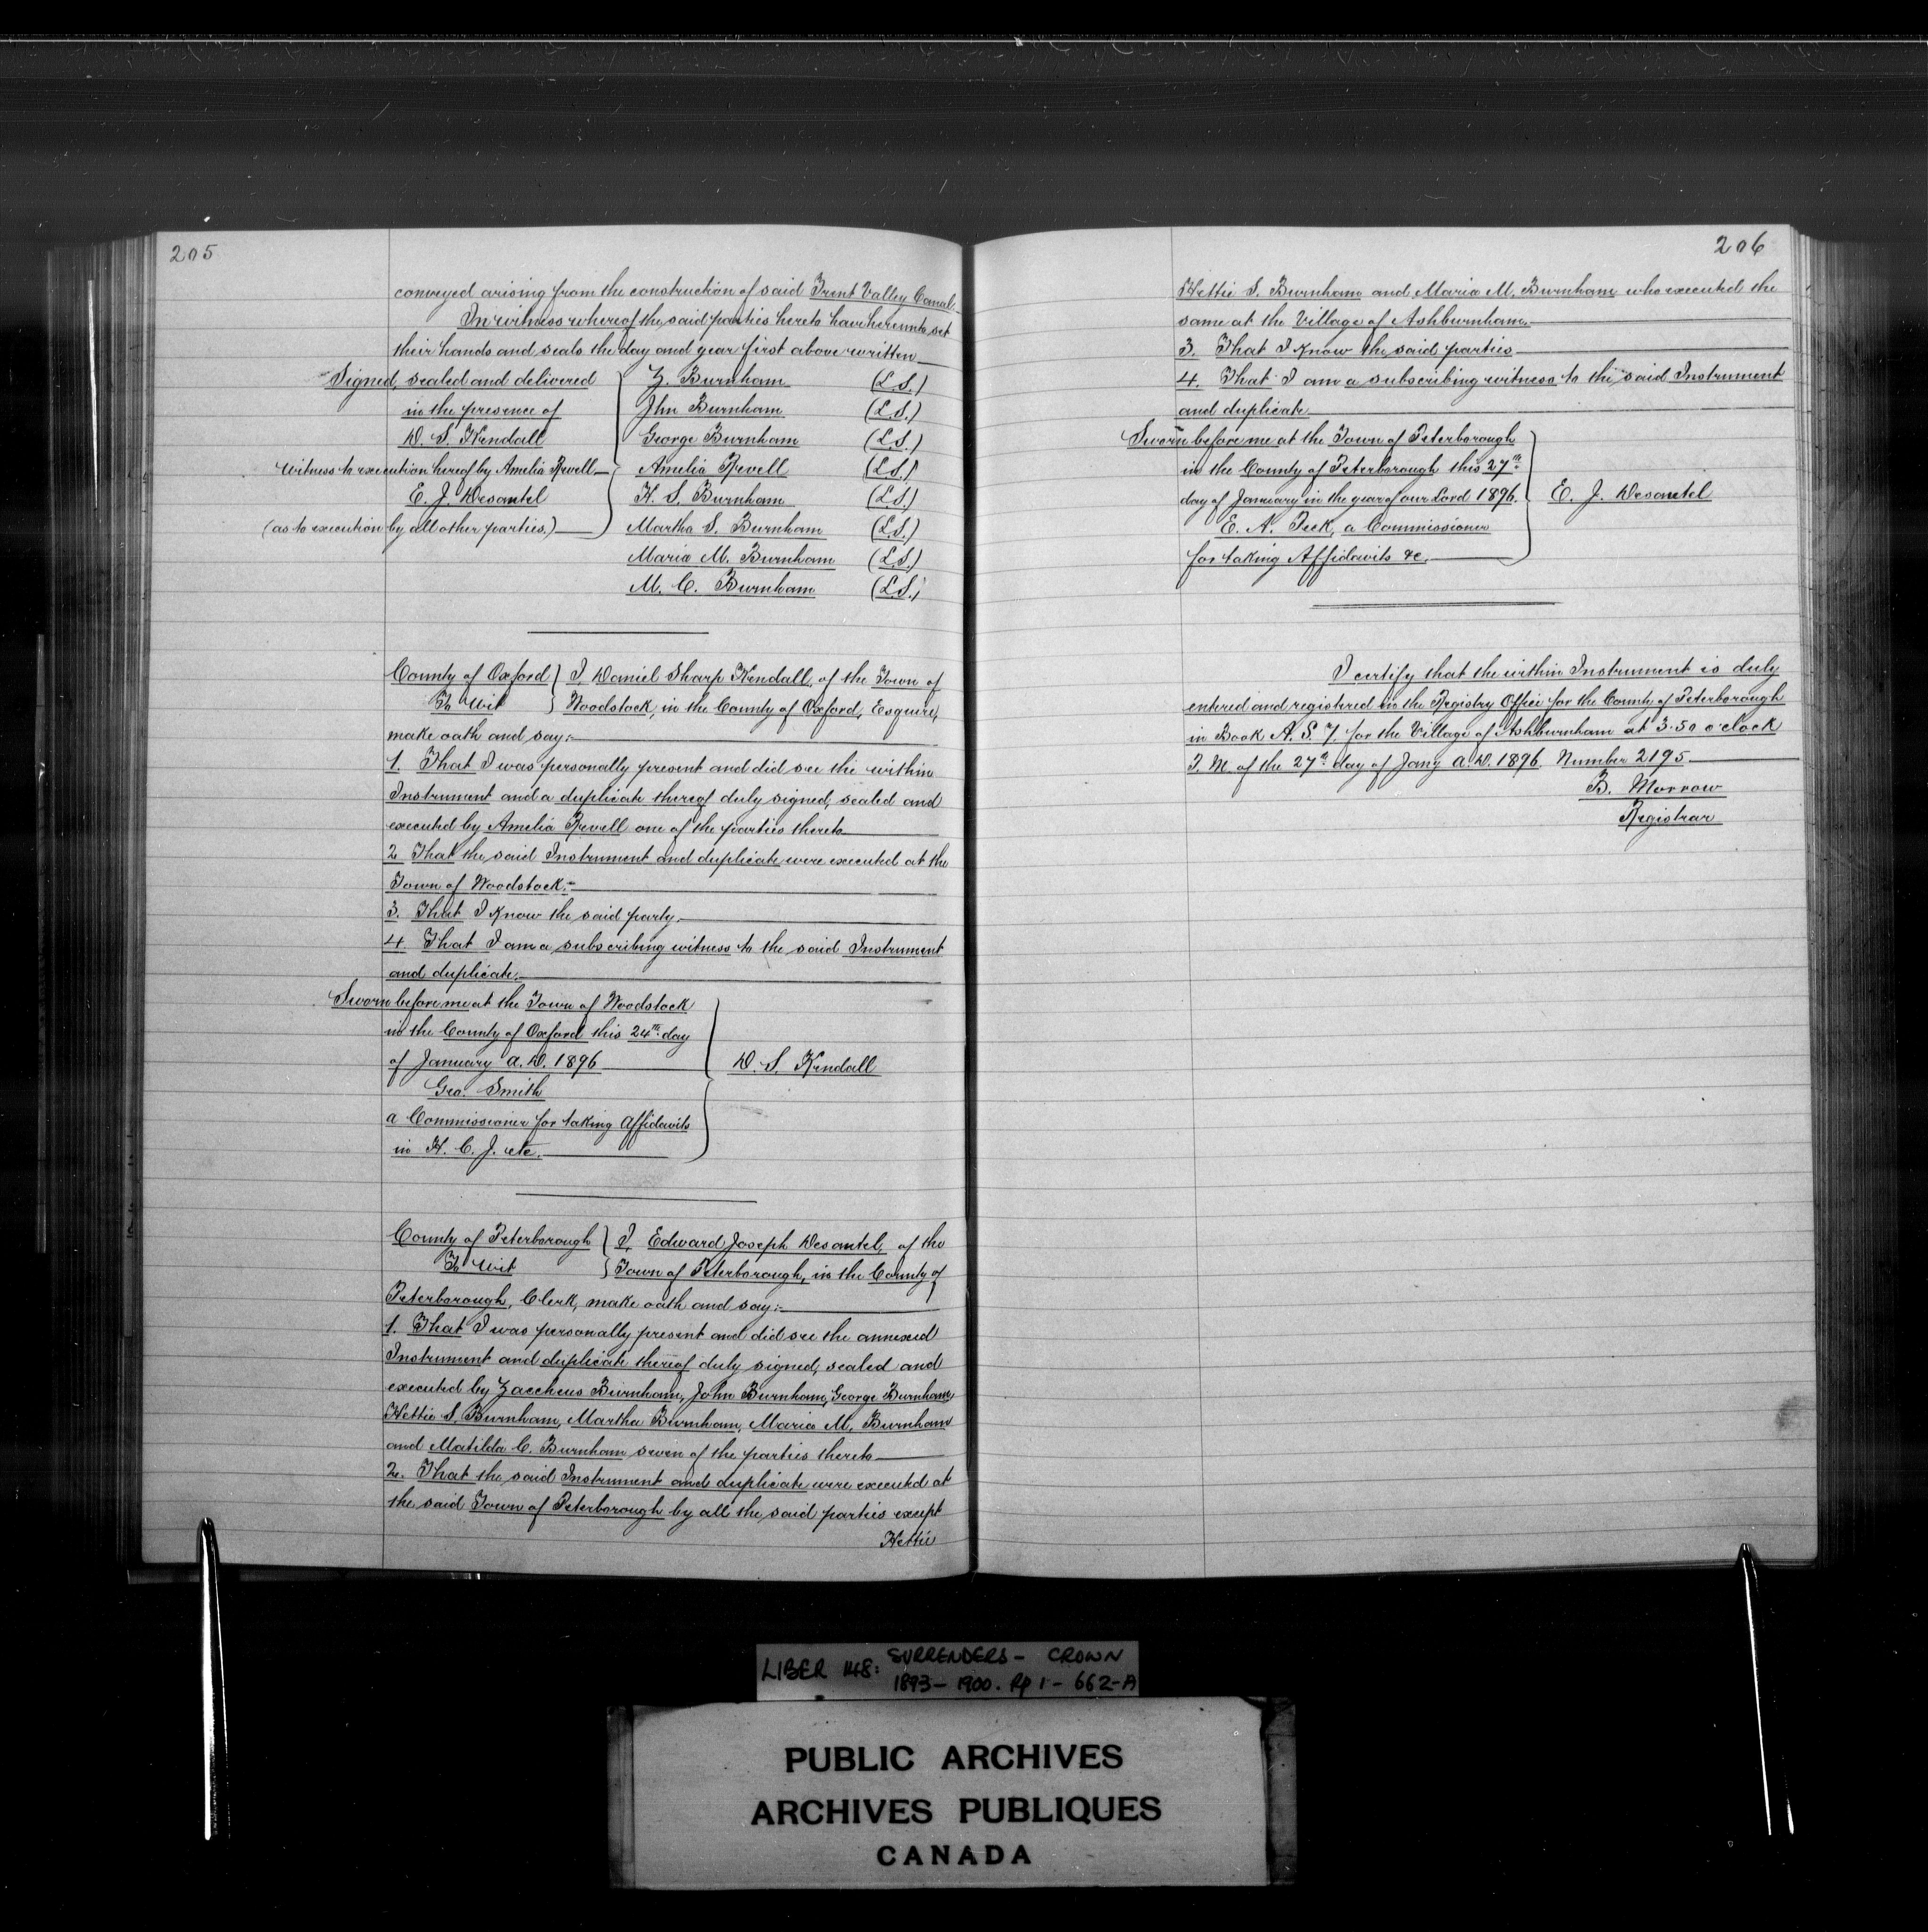 205
conveyed arising from the construction of said Trent Valley Canal.
In witness whereof the said parties hereto have hereunto set
their hands and seals the day and year first above written
Signed, sealed and delivered
in the presence of
D. S. Kendall
Witness to execution hereof by Amelia Revell
E. J. Desautel
(as to execution by all other parties.)
Z. Burnham (L.S.)
Jhn Burnham (L.S.)
George Burnham (L.S.)
Amelia Revell (L.S.)
H. S. Burnham (L.S.)
Martha S. Burnham (L.S.)
Maria M. Burnham (L.S.)
M. C. Burnham (L.S.)
County of Oxford } I, Daniel Sharp Kendall, of the Town of
To Wit } Woodstock, in the County of Oxford, Esquire,
make oath and say:-
1. That I was personally present and did see the within
Instrument and a duplicate thereof duly signed, sealed and
executed by Amelia Revell one of the parties thereto
2 That the said Instrument and duplicate were executed at the
Town of Woodstock:-
3. That I know the said party.
4. That I am a subscribing witness to the said Instrument
and duplicate.
Sworn before me at the Town of Woodstock
in the County of Oxford this 24th day
of January A.D. 1896
Geo. Smith
a Commissioner for taking affidavits
in H. C. J. etc.
D. S. Kendall
County of Peterborough } I, Edward Joseph Desautel, of the
To Wit } Town of Peterborough, in the County of
Peterborough, Clerk, make oath and say:-
1. That I was personally present and did see the annexed
Instrument and duplicate thereof duly signed, sealed and
executed by Zaccheus Burnham, John Burnham, George Burnham
Hettie S. Burnham, Martha Burnham, Maria M. Burnham
and Matilda C. Burnham seven of the parties thereto
2. That the said Instrument and duplicate were executed at
the said Town of Peterborough by all the said parties except
Hettie
206
Hettie S. Burnham and Maria M. Burnham who executed the
same at the Village of Ashburnham.
3. That I know the said parties
4. That I am a subscribing witness to the said Instrument
and duplicate
Sworn before me at the Town of Peterborough
in the County of Peterborough this 27th
day of January in the year of our Lord 1896.
E. A. Peck, a Commissioner
for taking Affidavits &c.
E. J. Desautel
I certify that the within Instrument is duly
entered and registered in the Registry Office for the County of Peterborough
in Book A. S. 7. for the Village of Ashburnham at 3.50 o'clock
P. M. of the 27th day of Jany A.D. 1896. Number 2195
B. Morrow
Registrar
LIBER 148: SURRENDERS - CROWN
1893 - 1900. Pp 1 - 662-A
PUBLIC ARCHIVES
ARCHIVES PUBLIQUES
CANADA